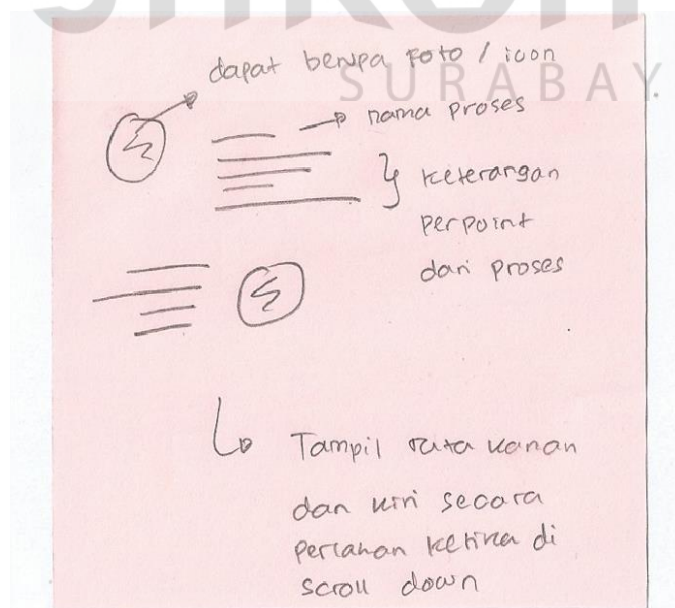 dapat berupa foto / icon
SURABAY
nama proses
keterangan
perpoint
dari proses
Tampil rata kanan
dan kiri secara
perlahan ketika di
scroll down